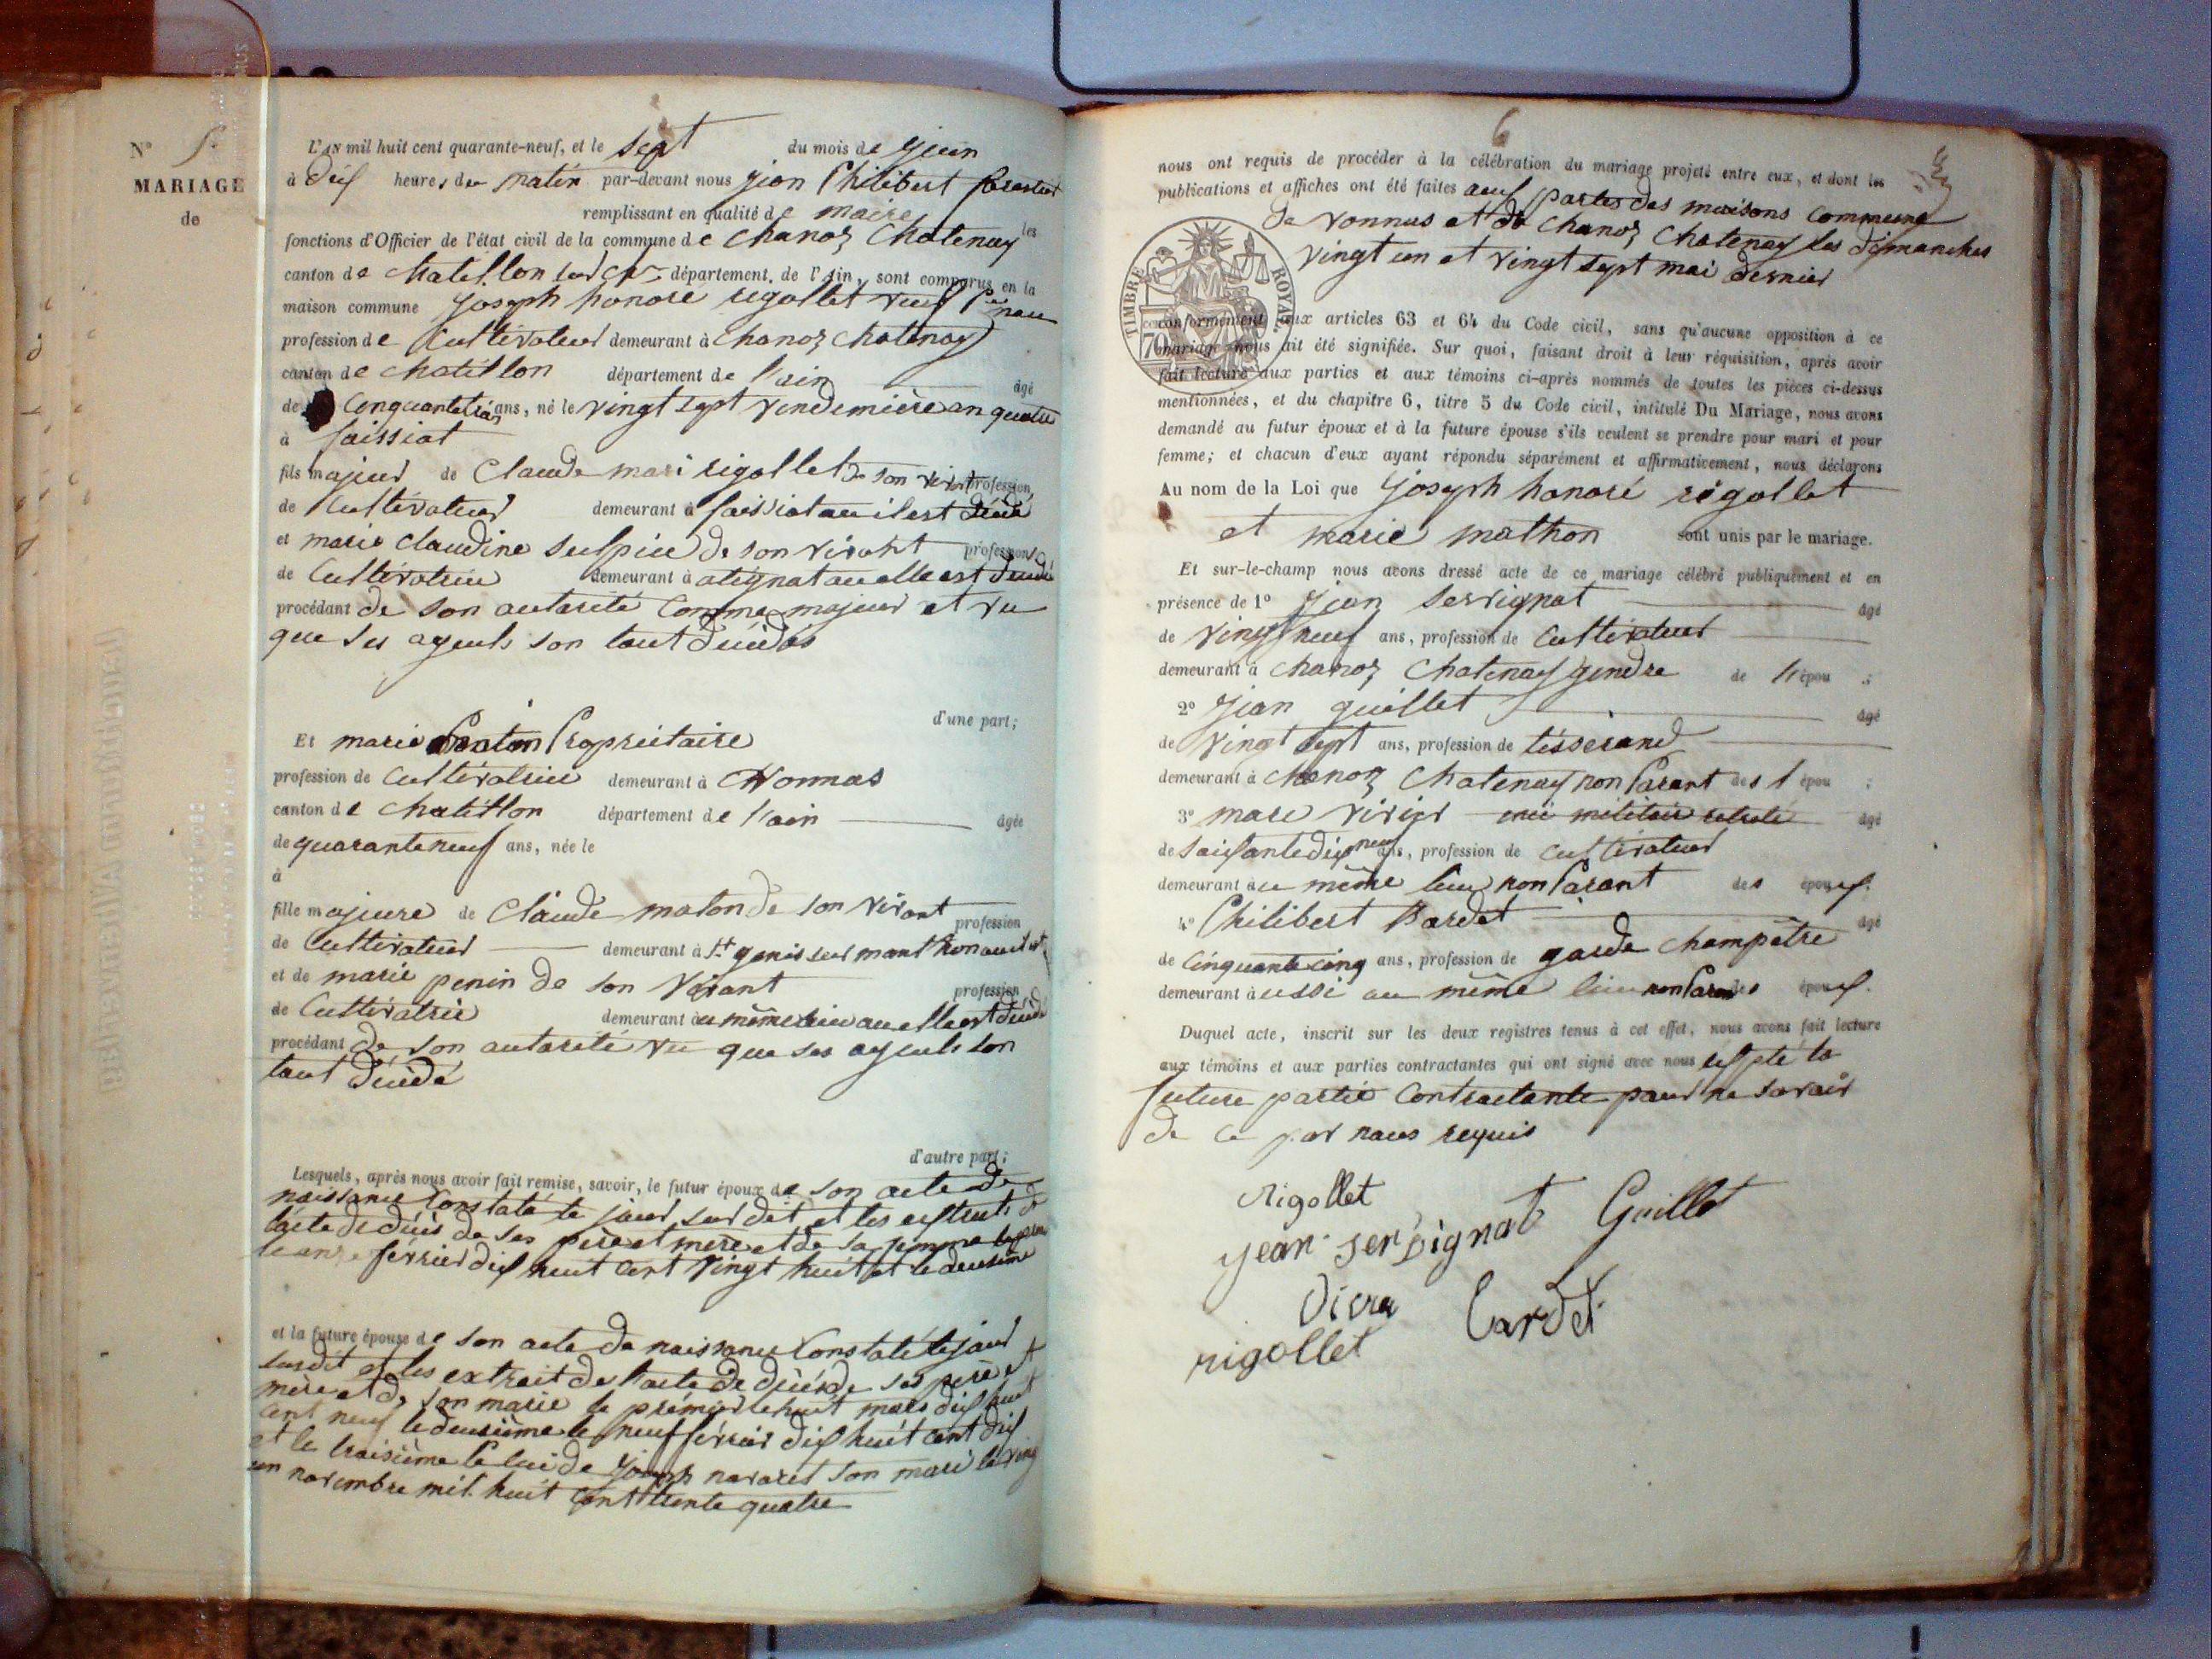 N° 5.
MARIAGE
de
L'AN mil huit cent quarante-neuf, et le sept du mois de juin
à dix heures du matin par-devant nous jean Philibert forestier
remplissant en qualité de maire les
fonctions d'Officier de l'état civil de la commune de Chanoz Chatenay
canton de Chatillon sur ch.ne département de l'Ain, sont comparus en la
maison commune Joseph honoré rigollet veuf
profession de Cultivateur demeurant à Chanoz Chatenay
canton de Chatillon département de l'ain âgé
de Cinquantetrois ans, né le vingt sept vendemière an quatre
à faissiat
fils majeur de Claude mari rigollet de son vivant profession
de Cultivateur demeurant à faissiat au il est
et marie Claudine Sulpice de son vivant profession
de Cultivatrice demeurant à atignat au elle est
procédant de son autorité Comme majeur et vu
que ses ayeuls son tout décidés
d'une part;
Et marie maton Propriétaire
profession de Cultivatrice demeurant à Vonnas
canton de Chatillon département de l'ain âgée
de quaranteneuf ans, née le
à
fille majeure de Claude maton de son vivant profession
de Cultivateur demeurant à St genis sur manthon
et de marie penin de son Vivant profession
de Cultivatrice demeurant au même lieu au elle est
procédant de son autorité vu que ses ayeuls son
tout décidé
d'autre part;
Lesquels, après nous avoir fait remise, savoir, le futur époux de son acte de
naissance Constaté le jour sur dit et les extraits de
l'acte de décès de ses père et mère et de sa femme le
le onze février dix huit cent vingt huit et le deusième
et la future épouse de son acte de naissance Constaté le jour
susdit et les extrait de l'acte de décès de ses père et
mère et de son marie le prémier le huit mars dix huit
cent neuf le deusième le neuf février dix huit cent dix
et le troisième celui de Joseph navaret son mari le ving
un novembre mil huit cent trente quatre
6
nous ont requis de procéder à la célébration du mariage projeté entre eux, et dont les
publications et affiches ont été faites aux portes des maisons Commune
de vonnas et de Chanoz Chatenay les dimanches
vingt un et vingt sept mai dernier
TIMBRE ROYAL
70
conformément aux articles 63 et 64 du Code civil, sans qu'aucune opposition à ce
mariage nous ait été signifiée. Sur quoi, faisant droit à leur réquisition, après avoir
fait lecture aux parties et aux témoins ci-après nommés de toutes les pièces ci-dessus
mentionnées, et du chapitre 6, titre 5 du Code civil, intitulé Du Mariage, nous avons
demandé au futur époux et à la future épouse s'ils veulent se prendre pour mari et pour
femme; et chacun d'eux ayant répondu séparément et affirmativement, nous déclarons
Au nom de la Loi que Joseph honoré rigollet
et marie mathon sont unis par le mariage.
Et sur-le-champ nous avons dressé acte de ce mariage célébré publiquement et en
présence de 1° jean servignat âgé
de vingt neuf ans, profession de Cultivateur
demeurant à Chanoz Chatenay gendre de l'épou ;
2° jean guillet âgé
de vingt sept ans, profession de tisserand
demeurant à Chanoz Chatenay non Parant des épou ;
3° marc vivier militair retraité âgé
de Soixantedix neuf ans, profession de Cultivateur
demeurant au même lieu non Parant des époux.
4° Philibert Bardet âgé
de Cinquante cinq ans, profession de garde Champêtre
demeurant aussi au même lieu non Parant des époux.
Duquel acte, inscrit sur les deux registres tenus à cet effet, nous avons fait lecture
aux témoins et aux parties contractantes qui ont signé avec nous exspté la
future partie Contractante pour ne savoir
de ce par nous requis
Rigollet
jean servignat Guillet
Bardet
rigollet